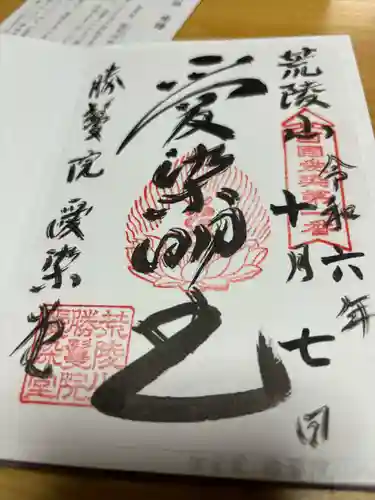 荒陵山
令和六年
十月七日
愛染明王
勝鬘院 愛染堂
荒陵山
勝鬘院
愛染堂